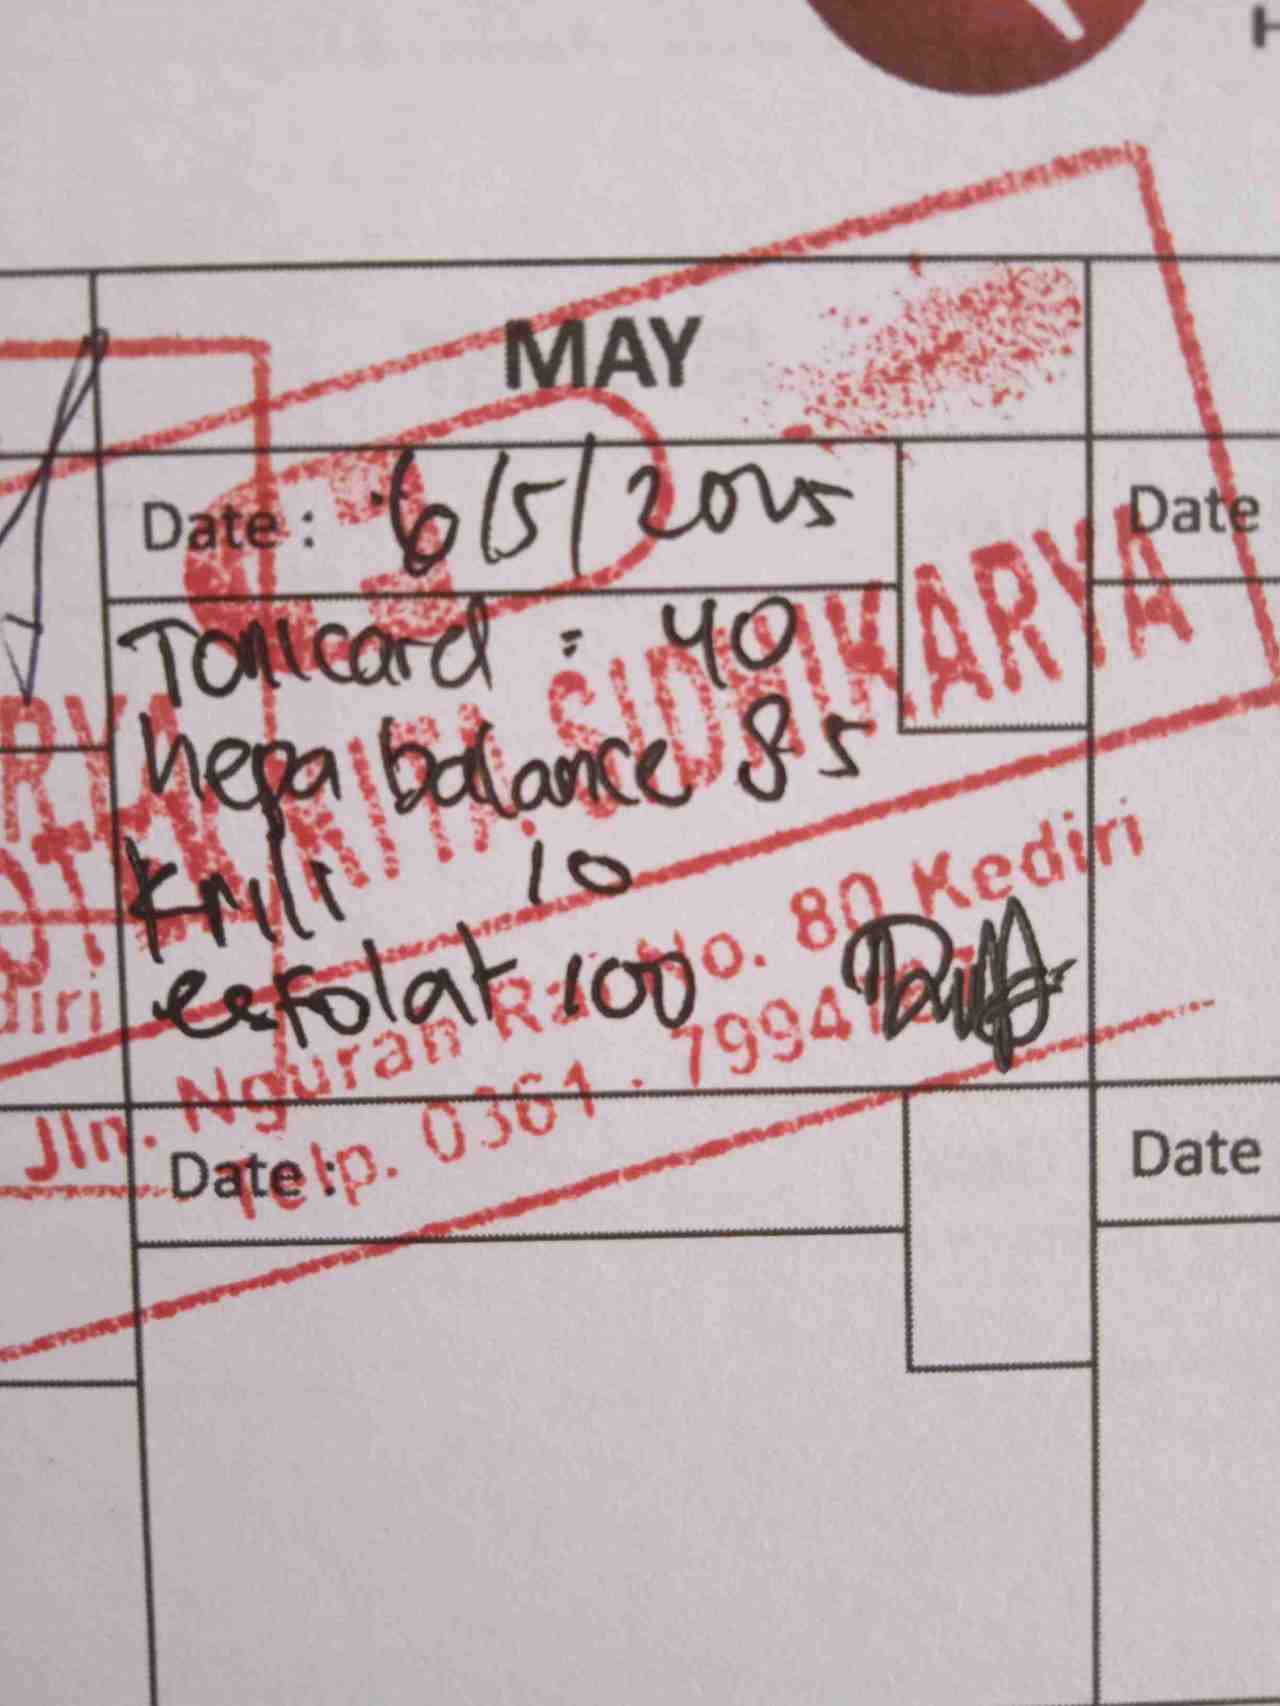 H
MAY
Date : 6/5/2025
Date
Tonicard : 40
hepa balance 85
Krili 10
esfolat 100
RITA SIDHIKARYA
Jln. Ngurah Rai No. 80 Kediri
Telp. 0361 - 7994
Date :
Date
diri